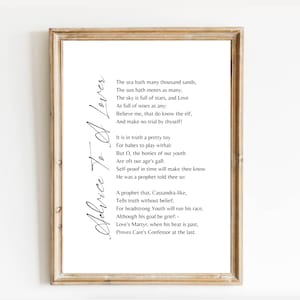 Advice To A Lover
The sea hath many thousand sands,
The sun hath motes as many;
The sky is full of stars, and Love
As full of woes as any:
Believe me, that do know the elf,
And make no trial by thyself!
It is in truth a pretty toy
For babes to play withal:
But O, the honies of our youth
Are oft our age's gall!
Self-proof in time will make thee know
He was a prophet told thee so:
A prophet that, Cassandra-like,
Tells truth without belief;
For headstrong Youth will run his race,
Although his goal be grief: -
Love's Martyr, when his heat is past,
Proves Care's Confessor at the last.